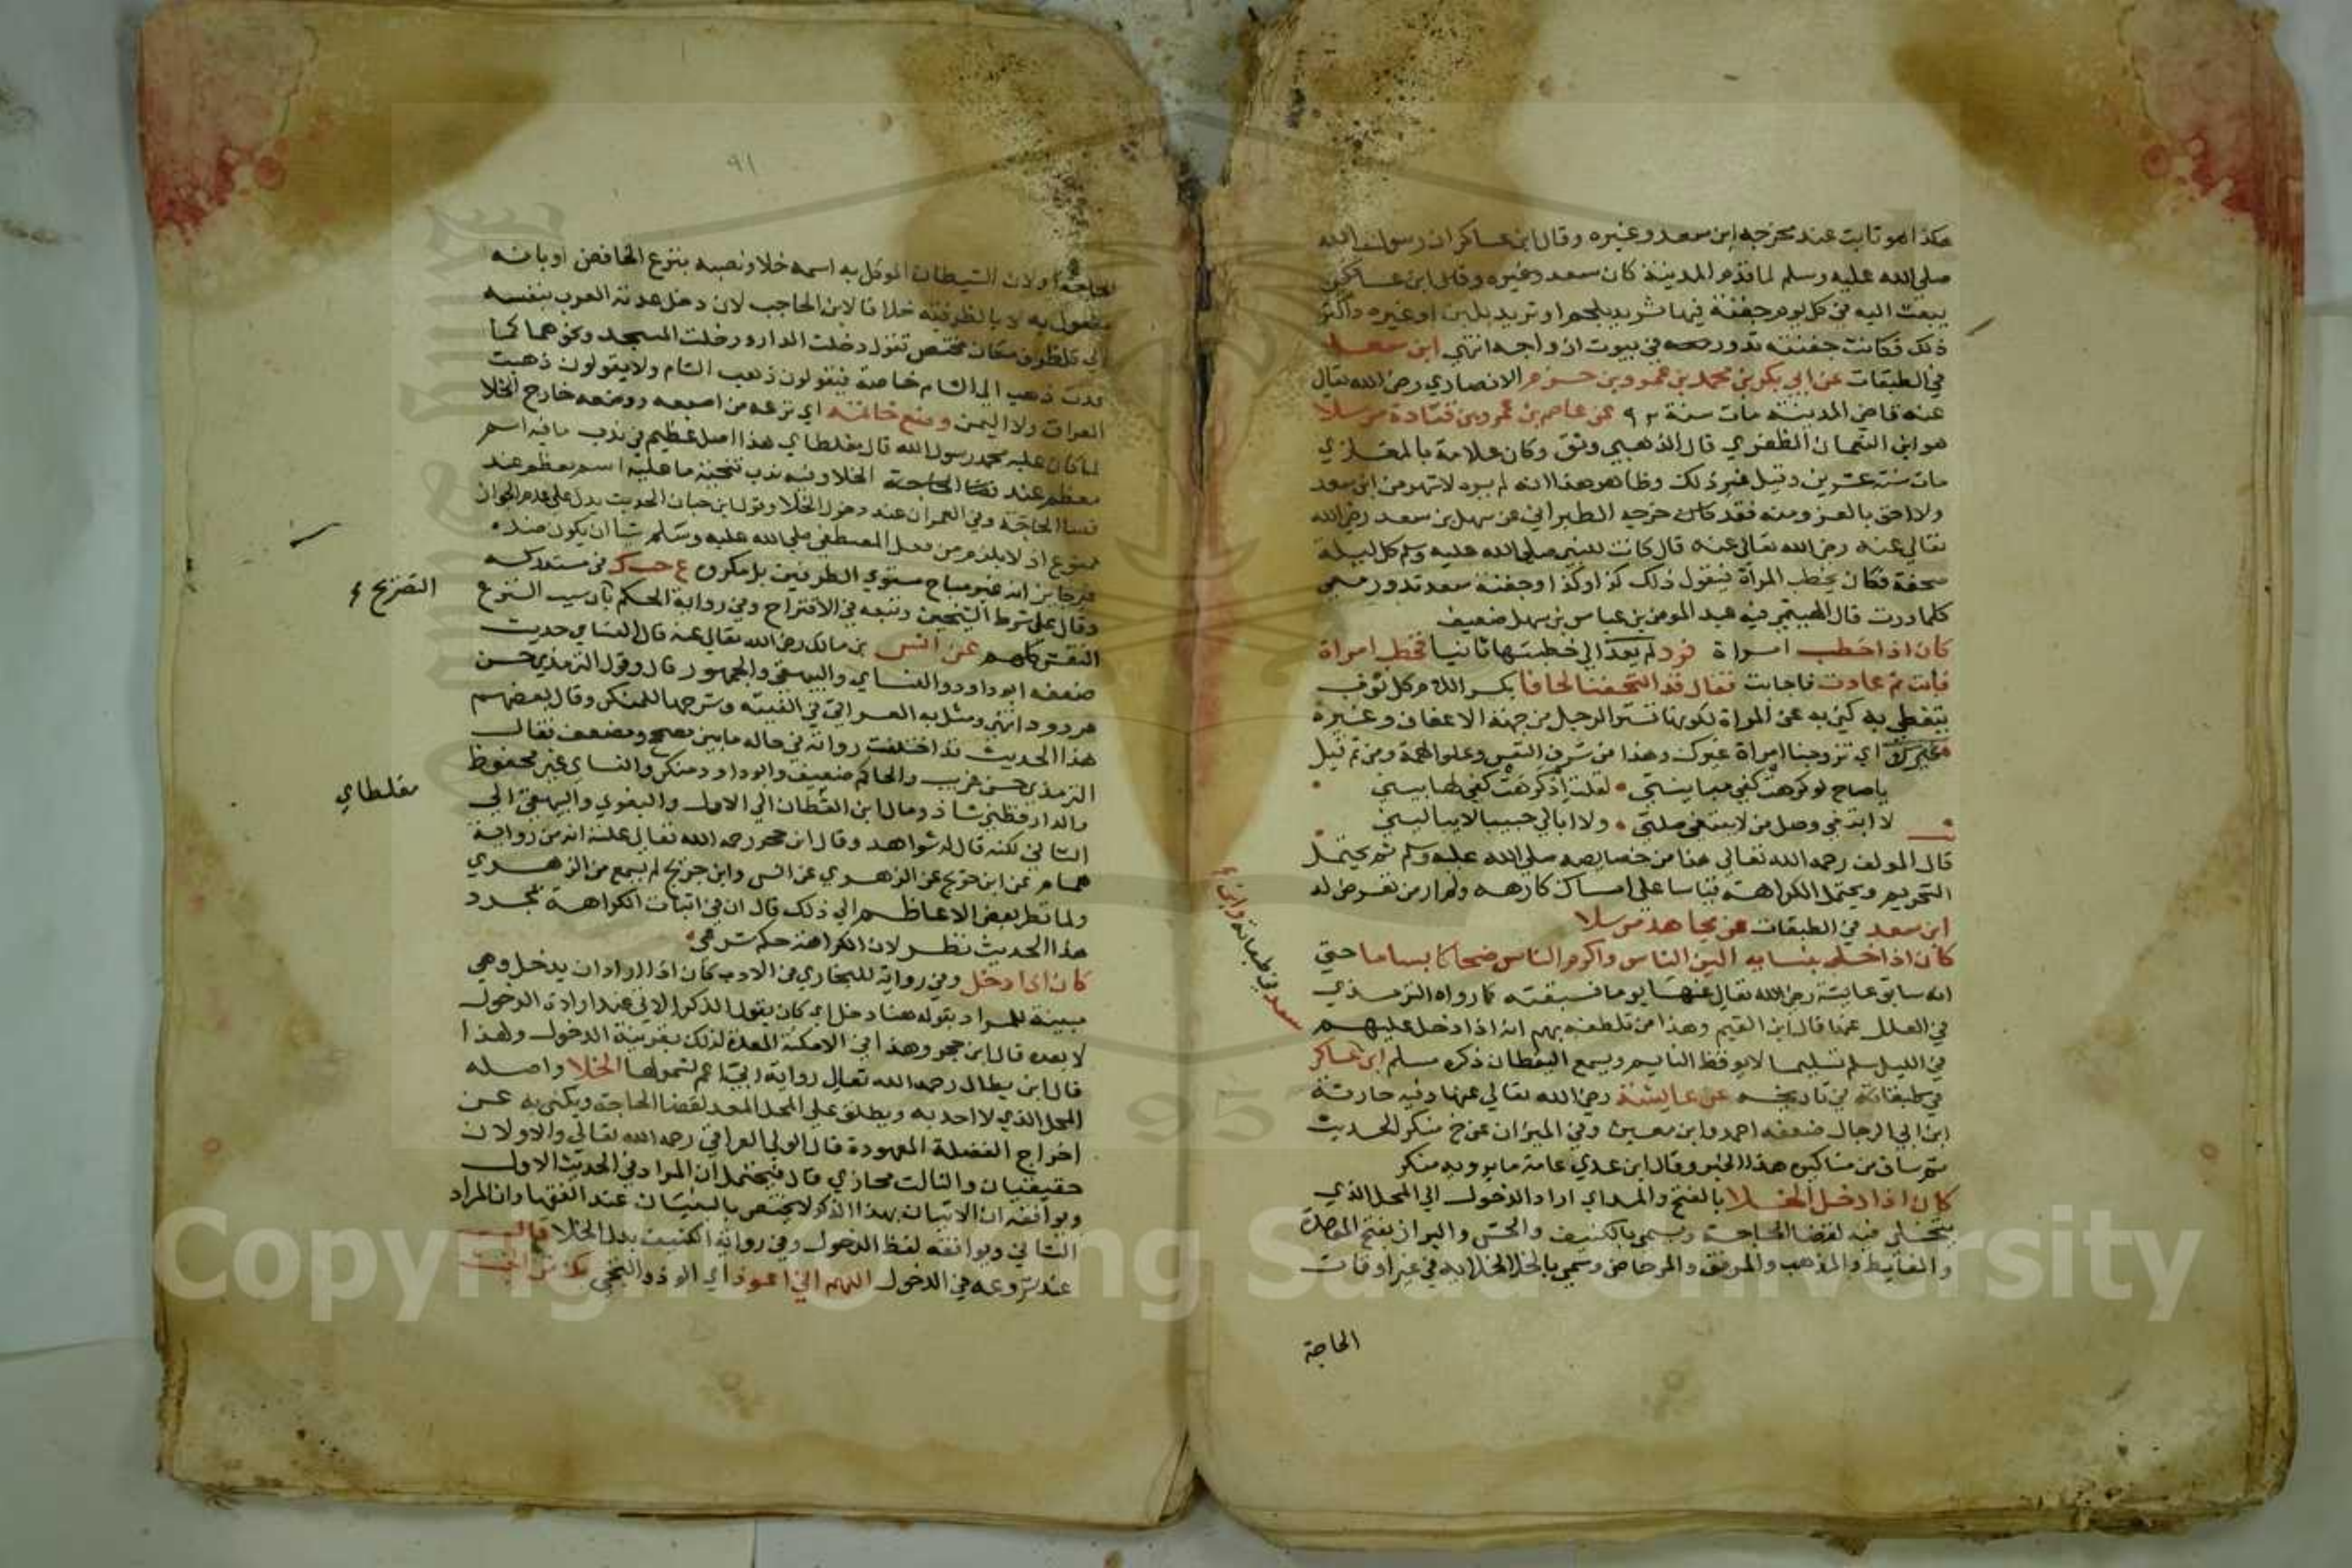 هكذا هو ثابت عند مخرجه ابن سعد وغيره وقال ابن عساكر ان رسول الله
صلى الله عليه وسلم لما قدم المدينة كان سعد وغيره وقال ابن عساكر
يبعث اليه في كل يوم جفنة فيها ثريد بلحم او ثريد بلبن او غيره واكثر
ذلك فكانت جفنته تدور معه في بيوت ازواجه انتهي ابن سعد
في الطبقات عن ابي بكر بن محمد بن عمرو بن حزم الانصاري رضي الله تعالي
عنه قاضي المدينة مات سنة عن عاصم بن عمرو بن قتادة مرسلا
هو ابن النعمان الظفري قال الذهبي وثق وكان علامة بالمغازي
مات سنة عشرين وقيل غير ذلك وظاهر هذا انه لم يره لاشهر من ابن سعد
ولا احق بالعزو منه فقد خرجه الطبراني عن سهل بن سعد رضي الله
تعالي عنه رضي الله تعالي عنه قال كانت للنبي صلي الله عليه وسلم كل ليلة
صحفة فكان يخطب المرأة فيقول ذلك كذا وكذا وجفنة سعد تدور معي
كلما درت قال الهيثمي فيه عبد المومن بن عباس بن سهل ضعيف
كان اذا خطب امراة فرد لم يعد الي خطبتها ثانيا فخطب امراة
فابت ثم عادت فاجابت فقال قد التحفنا لحافا بكسر اللام كل ثوب
يتغطي به كني به عن المراة لكونها تستر الرجل من جهة الاعفاف وغيره
غيرك اي تزوجنا امراة غيرك وهذا من شرف النفس وعلو الهمة ومن ثم قيل
يا صاح لو كرهت كفي مباينتي لقلت اذ كرهت كفي لها بيني
لا ابتغي وصل من لا يبتغي صلتي ولا ابالي حبيبا لا يباليني
قال المولف رحمه الله تعالي هذا من خصايصه صلي الله عليه وسلم ثم يحتمل
التحريم ويحتمل الكراهة قياسا علي امساك كارهته ولم ار من تعرض له
ابن سعد في الطبقات عن مجاهد مرسلا
كان اذا خلي بنسايه الين الناس واكرم الناس ضحاكا بساما حتي
انه سابق عايشة رضي الله تعالي عنها يوما فسبقته كما رواه الترمذي
في العلل عنها قال ابن القيم وهذا من تلطفه بهم انه اذا دخل عليهم
في الليل سلم تسليما لا يوقظ النايم ويسمع اليقظان ذكره مسلم ابن عساكر
في طبقاته في تاريخه عن عايشة رضي الله تعالي عنها وفيه حارثة
ابن ابي الرجال ضعفه احمد وابن معين وفي الميزان عن خ منكر الحديث
ثم ساق من مناكيره هذا الخبر وقال ابن عدي عامة ما يرويه منكر
كان اذا دخل الخلا بالفتح والمد اي اراد الدخول الي المحل الذي
يتخلي فيه لقضا الحاجة ويسمي بالكنيف والحش والبراز بفتح الموحدة
والغايط والمذهب والمرفق والمرحاض وسمي بالخلا لخلايه في غير اوقات
الحاجة
سعد في طبقاته وابن
٩١
الحاجة او لان الشيطان الموكل به اسمه خلا ونصبه بنزع الخافض او بانه
مفعول به لا بالظرفية خلافا لابن الحاجب لان دخل عدته العرب بنفسه
الي كل ظرف مكان مختص تقول دخلت الدار ودخلت المسجد ونحوهما كما
عدت ذهب الي الشام خاصة فيقولون ذهب الشام ولا يقولون ذهبت
العراق ولا اليمن وضع خاتمه اي نزعه من اصبعه ووضعه خارج الخلا
لما كان عليه محمد رسول الله قال مغلطاي هذا اصل عظيم في ندب ما فيه اسم
معظم عند قضا الحاجة الخلا وفيه ندب تنحية ما عليه اسم معظم عند
قضا الحاجة وفي العمران عند دخول الخلا وقول ابن حبان الحديث يدل علي عدم الجواز
ممنوع اذ لا يلزم من فعل المصطفي صلي الله عليه وسلم شيا ان يكون ضده
غير جايز انه غير مباح مستوي الطرفين بل مكروه ع حب ك في مستدركه
وقال علي شرط الشيخين وتبعه في الاقتراح وفي رواية الحكم بان سبب النزع
النقش كلهم عن انس بن مالك رضي الله تعالي عنه قال النساي حديث
ضعفه ابو داود والنساي والبيهقي والجمهور قال وقول الترمذي حسن
مردود انتهي ومثل به العراقي في الفيته وشرحها للمنكر وقال بعضهم
هذا الحديث قد اختلفت رواته في حاله ما بين مصحح ومضعف فقال
الترمذي حسن غريب والحاكم ضعيف وابو داود منكر والنساي غير محفوظ
والدارقطني شاذ ومال ابن القطان الي الاول والبغوي والبيهقي الي
الثاني لكنه قال له شواهد وقال ابن حجر رحمه الله تعالي علته انه من رواية
همام عن ابن جريج عن الزهري عن انس وابن جريج لم يسمع من الزهري
ولما نظر بعض الاعاظم الي ذلك قال ان في اثبات الكراهة بمجرد
هذا الحديث نظر لان الكراهة حكم شرعي
كان اذا دخل وفي رواية للبخاري في الادب كان اذا اراد ان يدخل وهي
مبينة للمراد بقوله هنا دخل اي كان يقول الذكر الاتي عند ارادة الدخول
لا بعده قال ابن حجر وهذا في الامكنة المعدة لذلك بقرينة الدخول ولهذا
قال ابن بطال رحمه الله تعالي رواية اتي اعم لشمولها الخلا واصله
المحل الذي لا احد به ويطلق علي المحل المعد لقضا الحاجة ويكني به عن
اخراج الفضلة المعهودة قال الولي العراقي رحمه الله تعالي والاولان
حقيقيان والثالث مجازي قال فيحتمل ان المراد في الحديث الاول
ويوافقه ان الاتيان بهذا الذكر لا يختص بالبنيان عند الفقها وان المراد
الثاني ويوافقه لفظ الدخول وفي رواية الكنيف بدل الخلا قال
عند شروعه في الدخول اللهم اني اعوذ اي الوذ والتجي بك من الخبث
التصريح
مغلطاي
Copyright © King Saud University